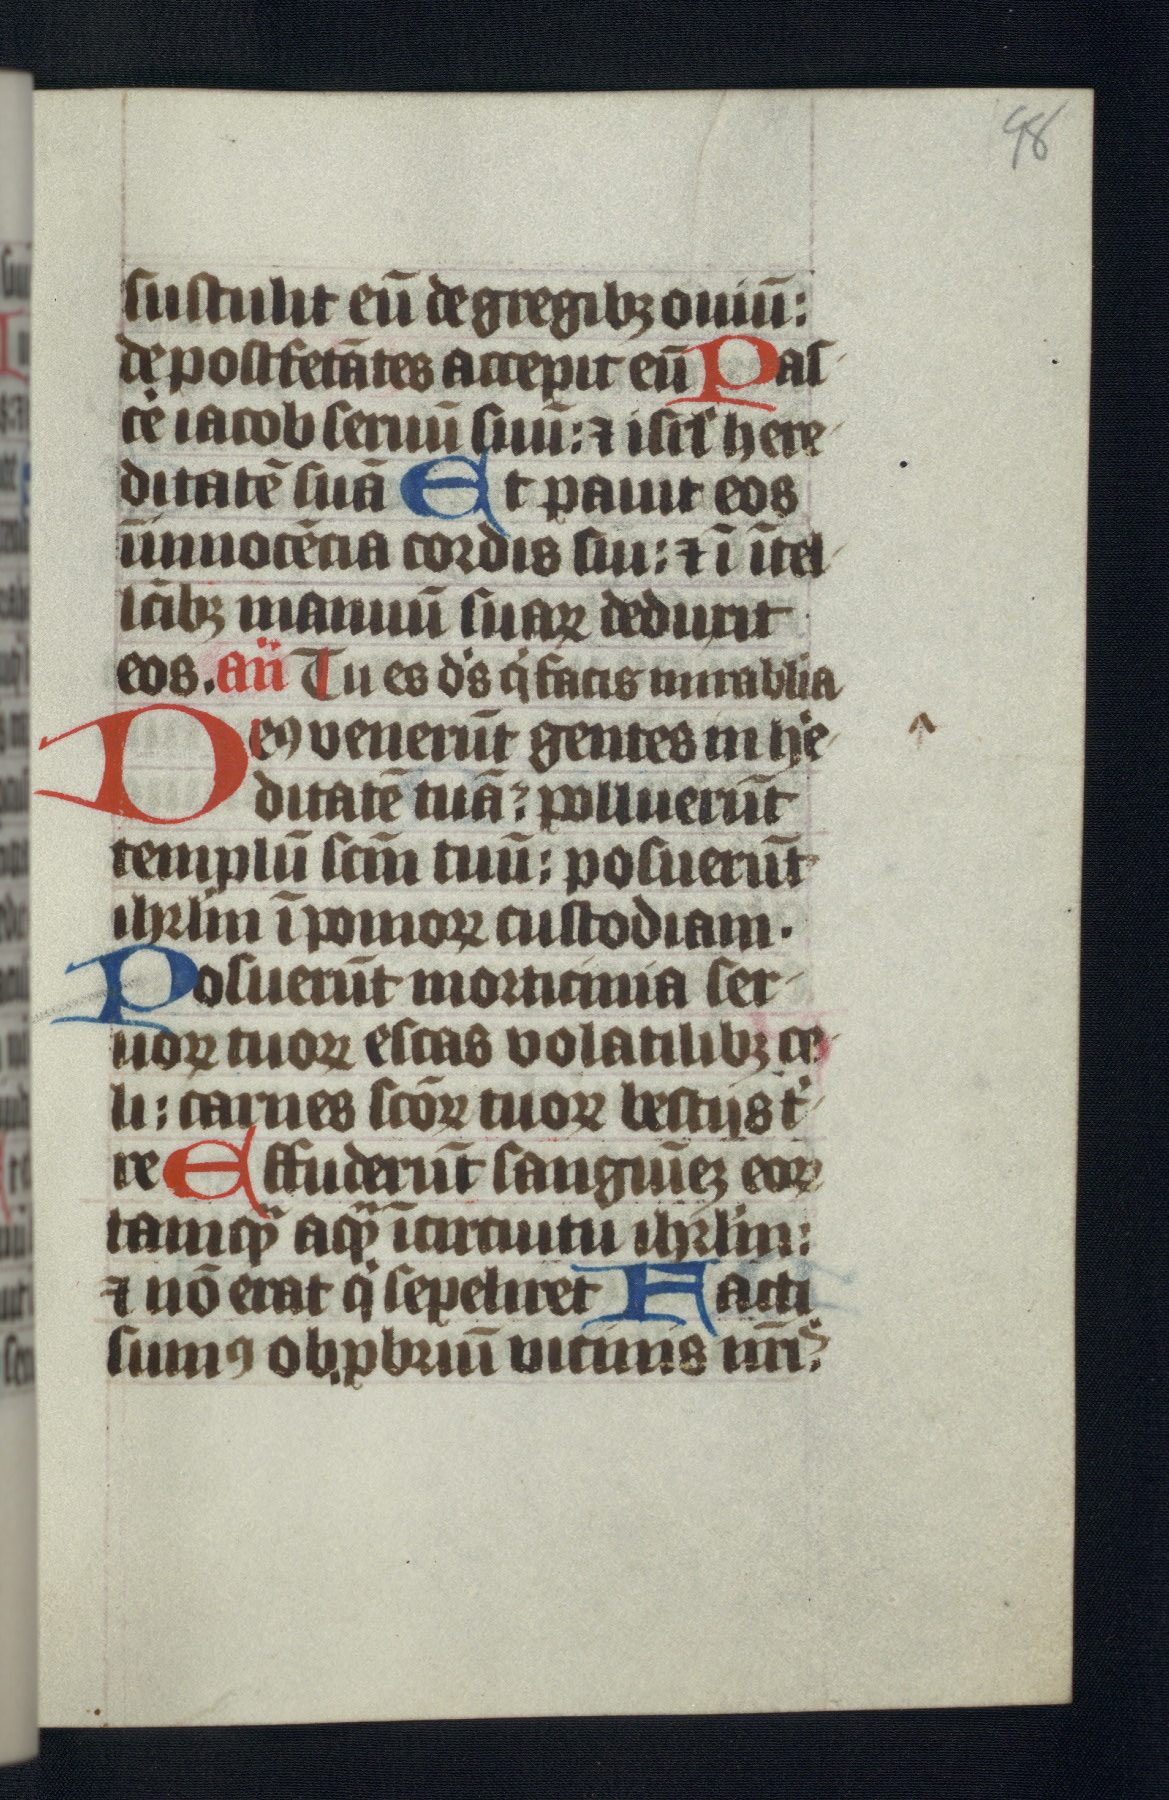 98
sustulit eū de gregibꝫ ouiū:
de post fetātes accepit eū Pas-
c̾e iacob seruū suū: ⁊ isrl̾ here-
ditatē suā Et pauit eos
ī innocētia cordis sui: ⁊ ī ītel-
lc̄ibꝫ manuū suaꝝ deduxit
eos. añ Tu es ds̄ qͥ facis mirabilia
Deꝰ venerūt gentes in he̾-
ditatē tuā: polluerūt
templū scm̄ tuū: posuerūt
ihrlm̄ ī pomoꝝ custodiam.
Posuerūt morticinia ser-
uoꝝ tuoꝝ escas volatilibꝫ ce-
li: carnes scōꝝ tuoꝝ bestijs t̾-
re Effuderūt sanguīeꝫ eoꝝ
tamqᷓ aqᷓ ī circuitu ihrlm̄:
⁊ nō erat qͥ sepeliret Facti
sumꝰ obꝓbriū vicinis nr̄is: